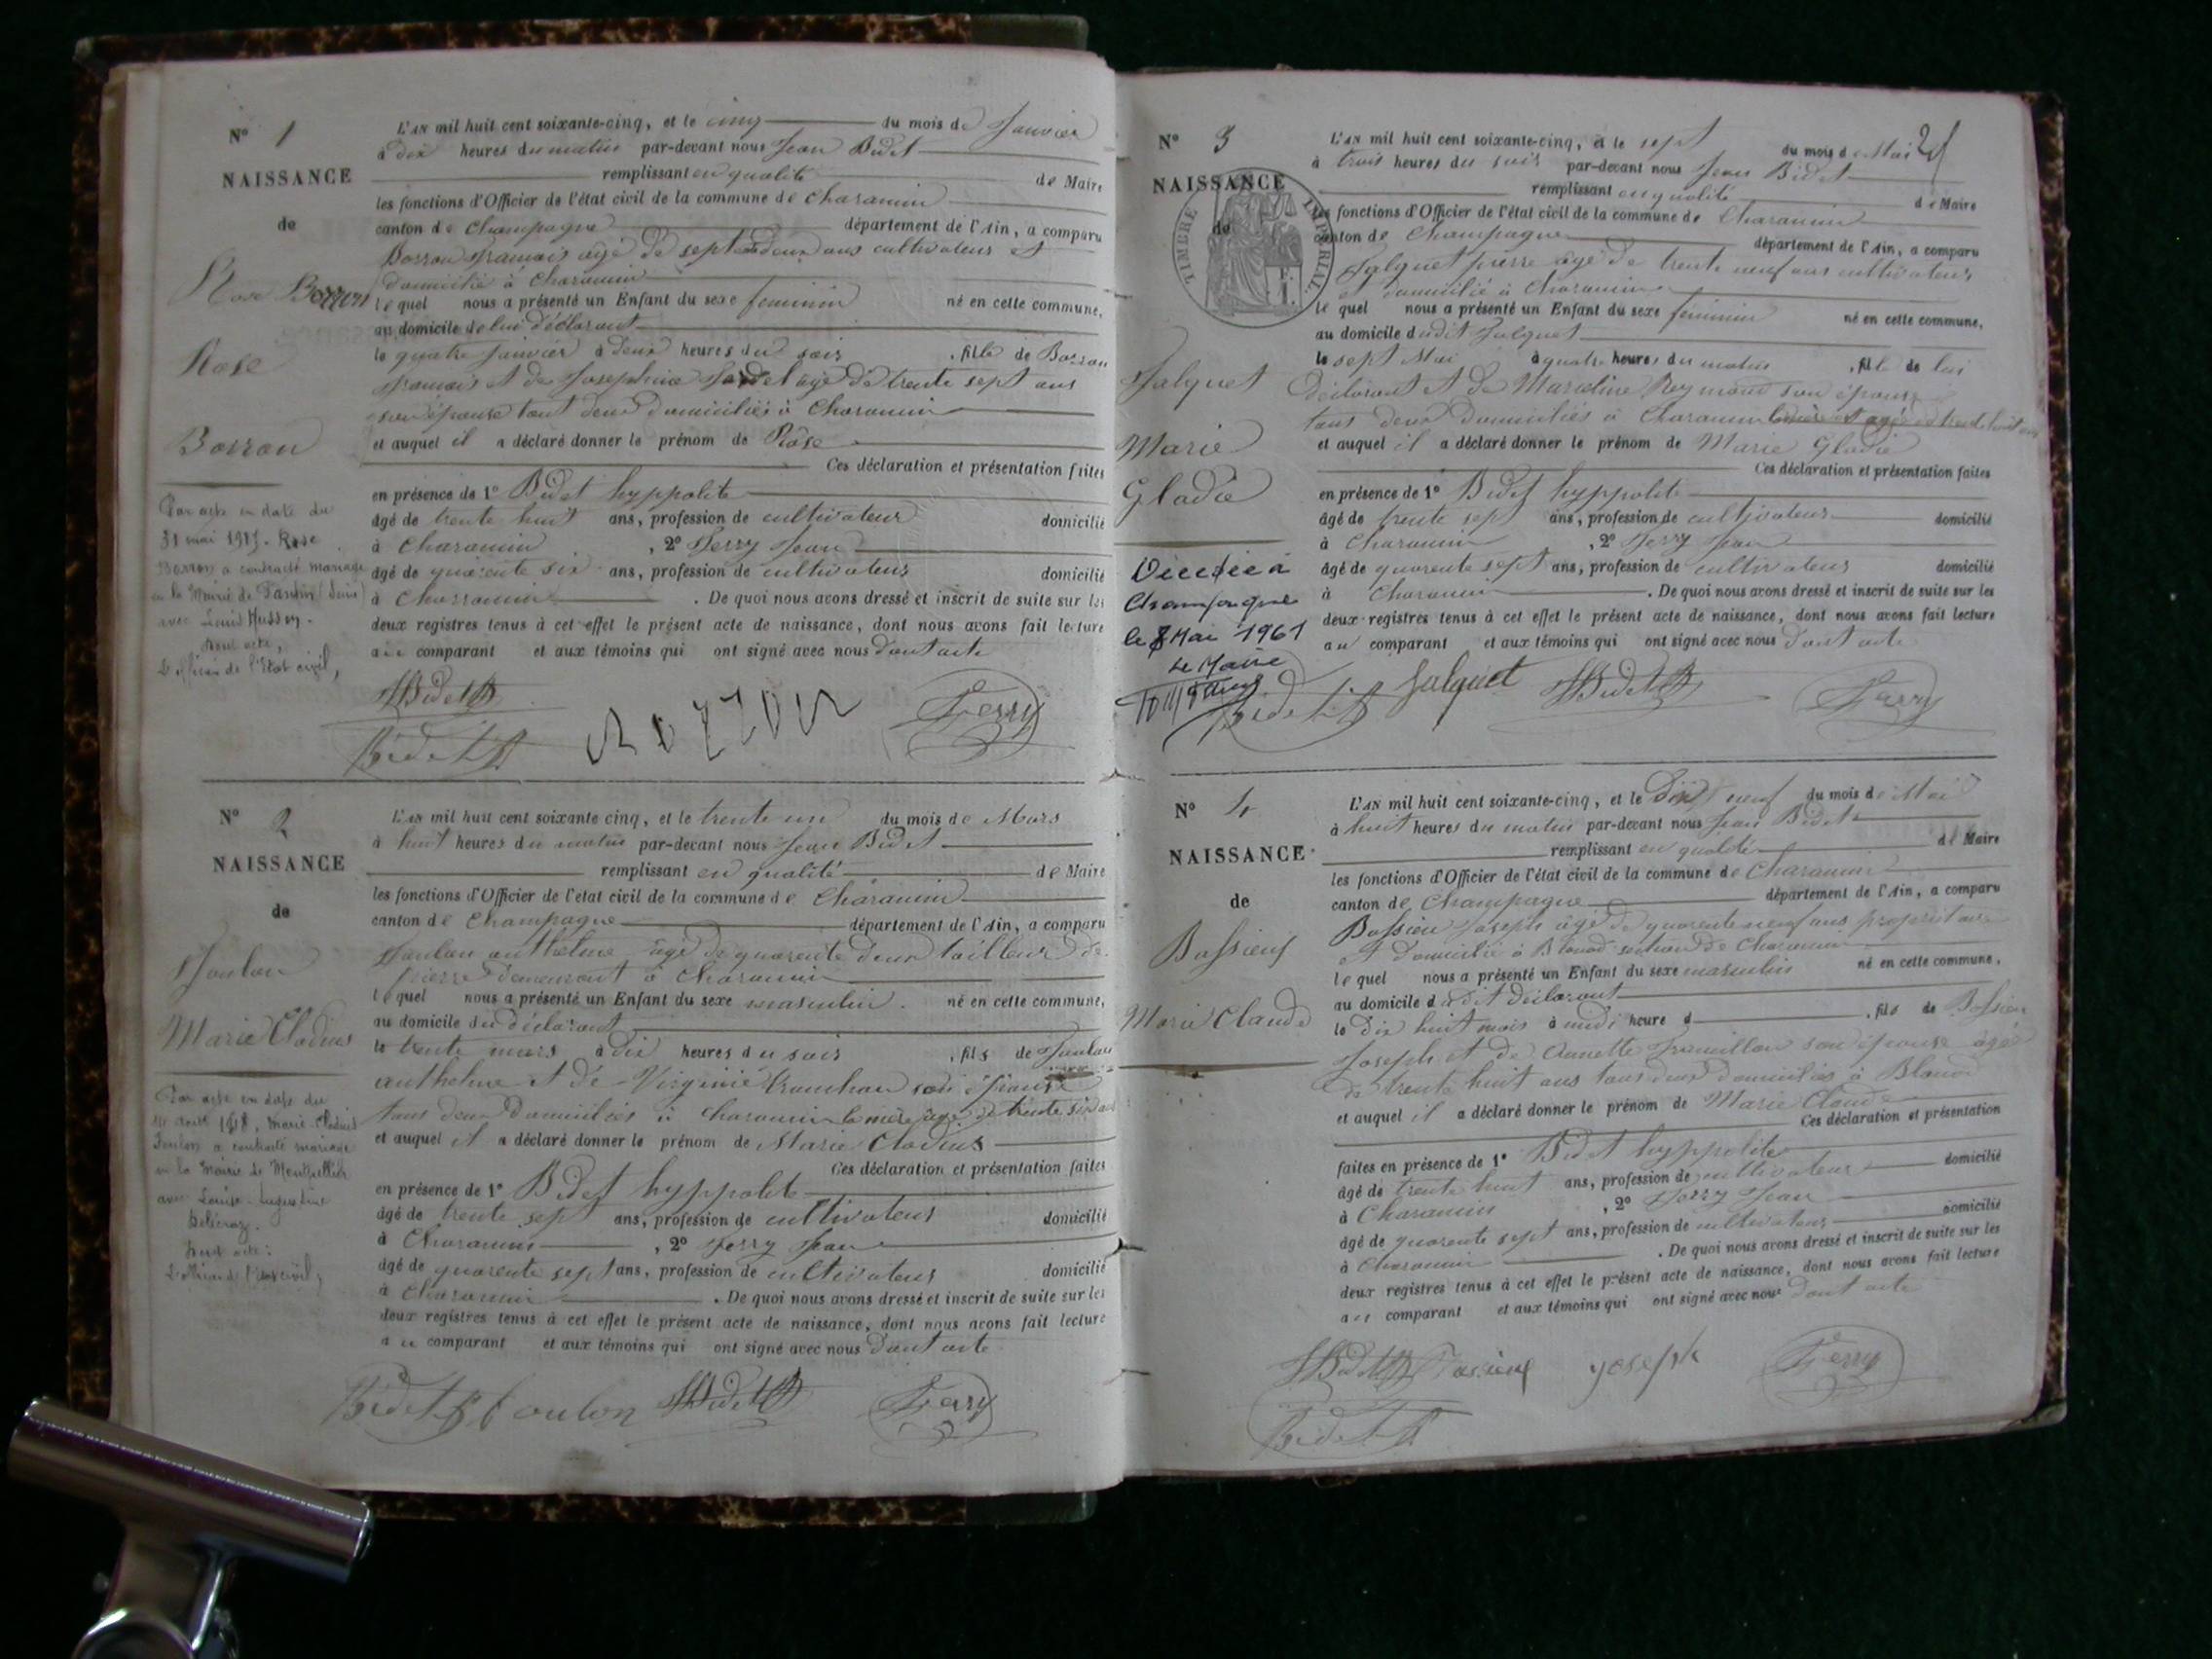 N° 1
NAISSANCE
de
Rose Borron
Rose
Borron
Par acte en date du
31 mai 1917. Rose
Borron a contracté mariage
en la Mairie de Pantin (Seine)
avec Louis
Dont acte,
L'officier de l'Etat civil,
L'AN mil huit cent soixante-cinq, et le cinq du mois de Janvier
à dix heures du matin par-devant nous Jean Bidet
remplissant en qualité de Maire
les fonctions d'Officier de l'état civil de la commune de Charancin
canton de Champagne département de l'Ain, a comparu
Borron français agé de ans cultivateur et
domicilié à Charancin
le quel nous a présenté un Enfant du sexe feminin né en cette commune,
au domicile de lui déclarant
le quatre Janvier à deux heures du soir , fille de Borron
français et de Josephine agé de trente sept ans
son épouse tout deux domiciliés à Charancin
et auquel il a déclaré donner le prénom de Rose
Ces déclaration et présentation faites
en présence de 1° Bidet hyppolite
âgé de trente huit ans, profession de cultivateur domicilié
à Charancin , 2° Ferry Jean
âgé de quarente six ans, profession de cultivateur domicilié
à Charancin . De quoi nous avons dressé et inscrit de suite sur les
deux registres tenus à cet effet le présent acte de naissance, dont nous avons fait lecture
au comparant et aux témoins qui ont signé avec nous dont acte
HBidet
Bidet Borron Ferry
N° 2
NAISSANCE
de
Joulon
Marie Clodius
Par acte en date du
août 1918, Marie-Clodius
Joulon a contracté mariage
en la Mairie de Montpellier
avec Louise-Augustine
Dont acte:
L'officier de l'Etat civil,
L'AN mil huit cent soixante cinq, et le trente un du mois de Mars
à huit heures du matin par-devant nous Jean Bidet
remplissant en qualité de Maire
les fonctions d'Officier de l'état civil de la commune de Charancin
canton de Champagne département de l'Ain, a comparu
Joulon anthelme agé de quarente deux tailleur de
pierre demeurant à Charancin
le quel nous a présenté un Enfant du sexe masculin né en cette commune,
au domicile du déclarant
le trente mars à dix heures du soir , fils de Joulon
anthelme et de Virginie son épouse
tous deux domiciliés à Charancin la mère agé de trente six ans
et auquel il a déclaré donner le prénom de Marie Clodius
Ces déclaration et présentation faites
en présence de 1° Bidet hyppolite
âgé de trente sept ans, profession de cultivateur domicilié
à Charancin , 2° Ferry Jean
âgé de quarente sept ans, profession de cultivateur domicilié
à Charancin . De quoi nous avons dressé et inscrit de suite sur les
deux registres tenus à cet effet le présent acte de naissance, dont nous avons fait lecture
au comparant et aux témoins qui ont signé avec nous dont acte
Bidet Joulon HBidet Ferry
N° 3
NAISSANCE
de
TIMBRE IMPÉRIAL
Jalquet
Marie
Gladie
Décédée à
Champagne
le 8 Mai 1961
Le Maire
L'AN mil huit cent soixante-cinq, et le sept du mois de Mai
à trois heures du soir par-devant nous Jean Bidet
remplissant en qualité de Maire
les fonctions d'Officier de l'état civil de la commune de Charancin
canton de Champagne département de l'Ain, a comparu
Jalquet pierre agé de trente neuf ans cultivateur
et domicilié à Charancin
le quel nous a présenté un Enfant du sexe feminin né en cette commune,
au domicile dudit Jalquet
le sept Mai à quatre heures du matin , fille de lui
déclarant et de Marceline Reymond son épouse
tous deux domiciliés à Charancin la mère agé de trente huit ans
et auquel il a déclaré donner le prénom de Marie Gladie
Ces déclaration et présentation faites
en présence de 1° Bidet hyppolite
âgé de trente sept ans, profession de cultivateur domicilié
à Charancin , 2° Ferry Jean
âgé de quarente sept ans, profession de cultivateur domicilié
à Charancin . De quoi nous avons dressé et inscrit de suite sur les
deux registres tenus à cet effet le présent acte de naissance, dont nous avons fait lecture
au comparant et aux témoins qui ont signé avec nous dont acte
Bidet Jalquet HBidet Ferry
N° 4
NAISSANCE
de
Bossieux
Marie Claude
L'AN mil huit cent soixante-cinq, et le dix neuf du mois de Mai
à huit heures du matin par-devant nous Jean Bidet
remplissant en qualité de Maire
les fonctions d'Officier de l'état civil de la commune de Charancin
canton de Champagne département de l'Ain, a comparu
Bossieu Joseph agé de quarente neuf ans propriétaire
et domicilié à Blanod section de Charancin
le quel nous a présenté un Enfant du sexe masculin né en cette commune,
au domicile dudit déclarant
le dix huit mois à midi heure d , fils de Bossieu
Joseph et de Annette son épouse agé
de trente huit ans tous deux domiciliés à Blanod
et auquel il a déclaré donner le prénom de Marie Claude
Ces déclaration et présentation
faites en présence de 1° Bidet hyppolite
âgé de trente huit ans, profession de cultivateur domicilié
à Charancin , 2° Ferry Jean
âgé de quarente sept ans, profession de cultivateur domicilié
à Charancin . De quoi nous avons dressé et inscrit de suite sur les
deux registres tenus à cet effet le présent acte de naissance, dont nous avons fait lecture
au comparant et aux témoins qui ont signé avec nous dont acte
HBidet Bassieux Joseph Ferry
Bidet